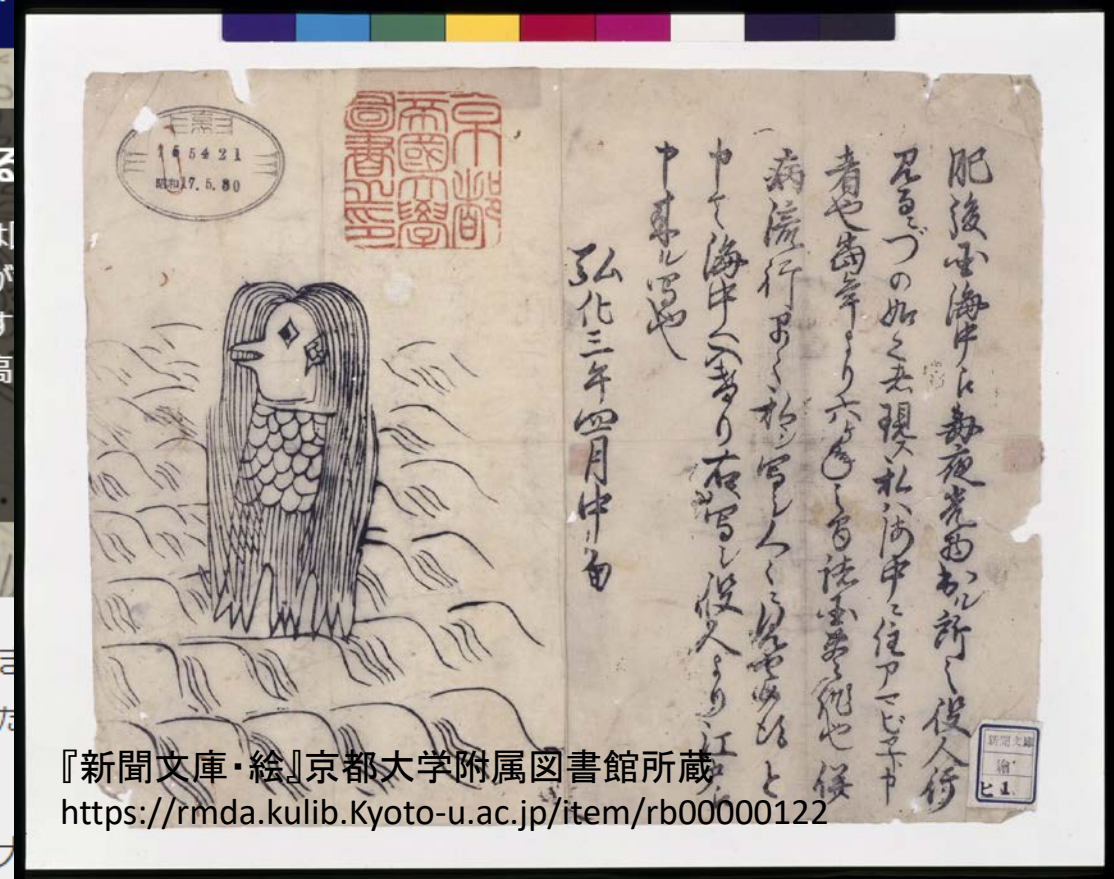 肥後国海中え毎夜光物出ル所之役人行
見るニづの如く者現ス私ハ海中ニ住アマビヱト申
者也当年より六ヶ年之間諸国豊作也併
病流行早々私ヲ写シ人々ニ見せ候得と
申て海中へ入けり右写シ役人より江戸え
申来ル写也
弘化三年四月中旬
京都
帝國大學
圖書之印
昭和17.5.30
新聞文庫
繪
ヒ 1.
『新聞文庫・絵』京都大学附属図書館所蔵
https://rmda.kulib.Kyoto-u.ac.jp/item/rb00000122